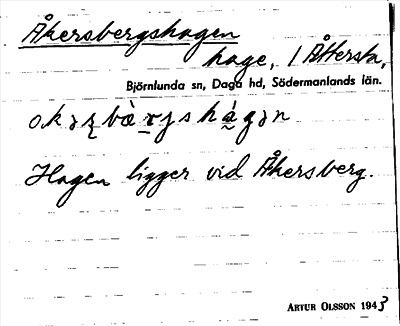 Åkersbergshagen
hage, i Åttersta,
Björnlunda sn, Daga hd, Södermanlands län.
Hagen ligger vid Åkersberg.
ARTUR OLSSON 1943